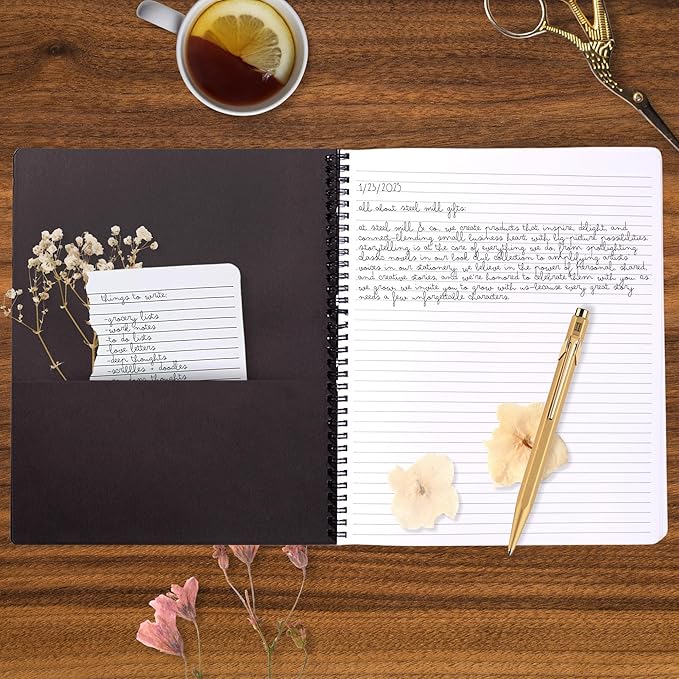 things to write:
-grocery lists
-work notes
-to do lists
-love letters
-deep thoughts
-scribbles + doodles
thoughts
1/23/2023
all about steel mill gifts:
at steel mill & co. we create products that inspire, delight, and
connect-blending small business heart with big-picture possibilities.
storytelling is at the core of everything we do, from spotlighting
classic novels in our book due collection to amplifying artists'
voices in our stationery. we believe in the power of personal, shared,
and creative stories, and we're honored to celebrate them with you. as
we grow, we invite you to grow with us-because every great story
needs a few unforgettable characters.